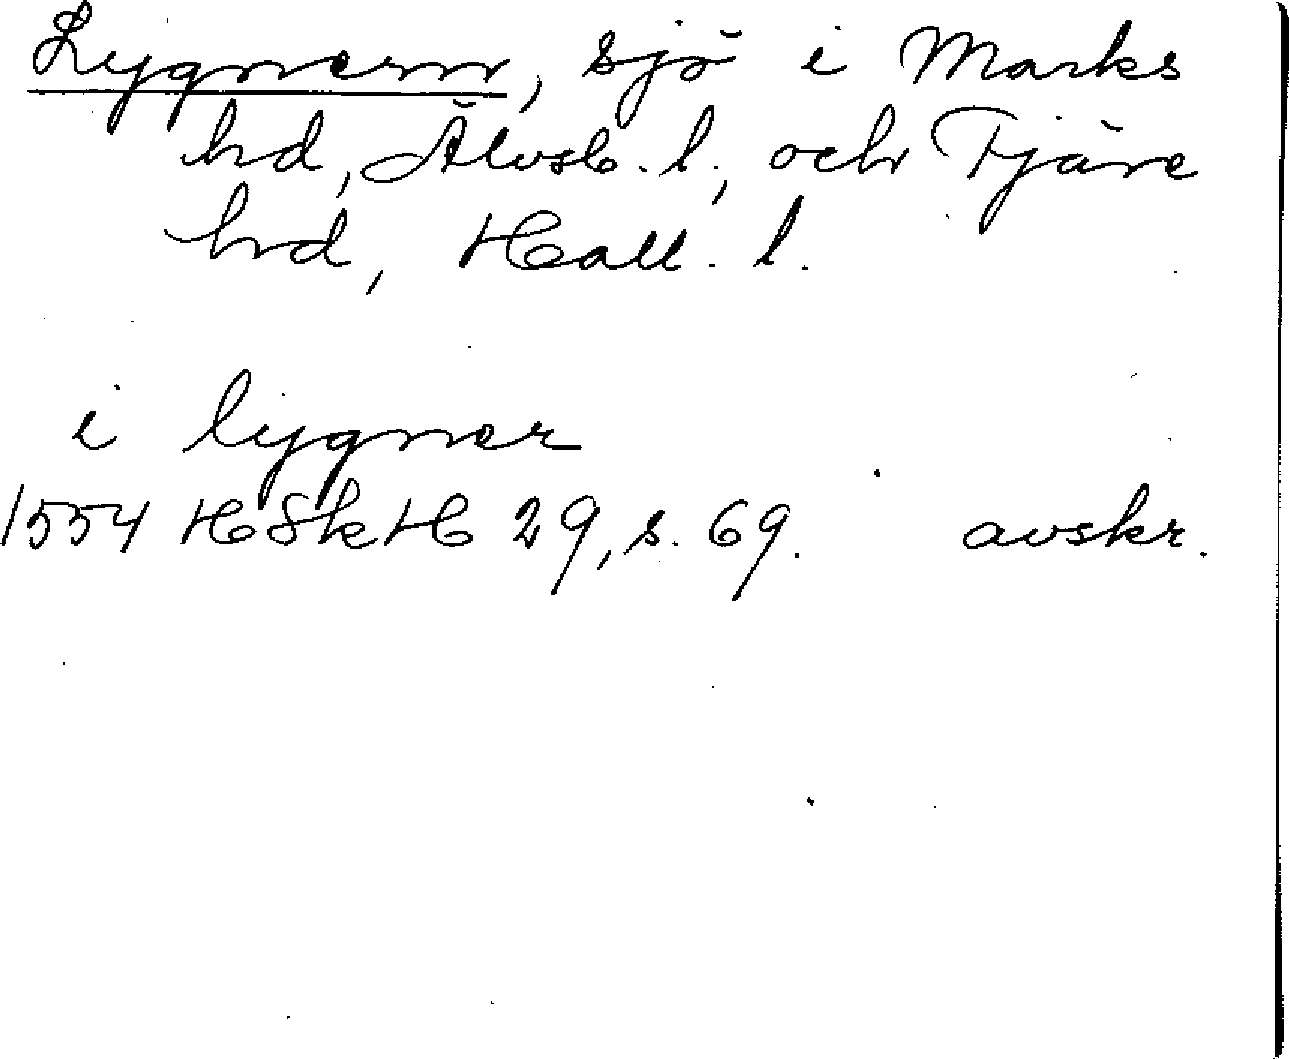 Lygnern, sjö i Marks
hd, Älvsb. l., och Fjäre
hd, Hall. l.
i lygner
1554 HSkH 29, s. 69. avskr.